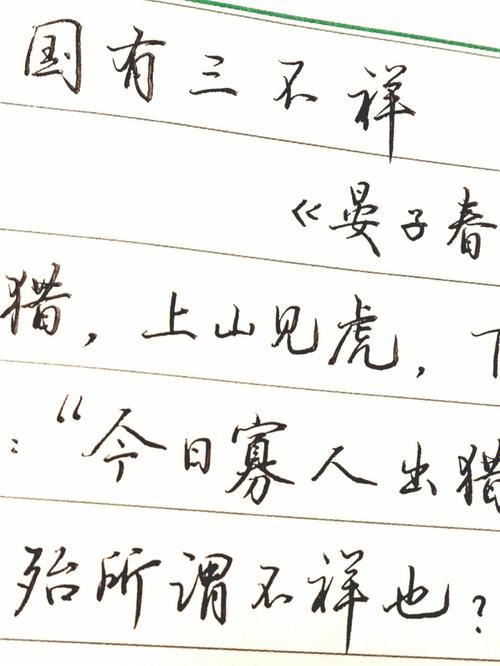 国有三不祥
《晏子春
猎，上山见虎，下
：“今日寡人出猎
殆所谓不祥也？